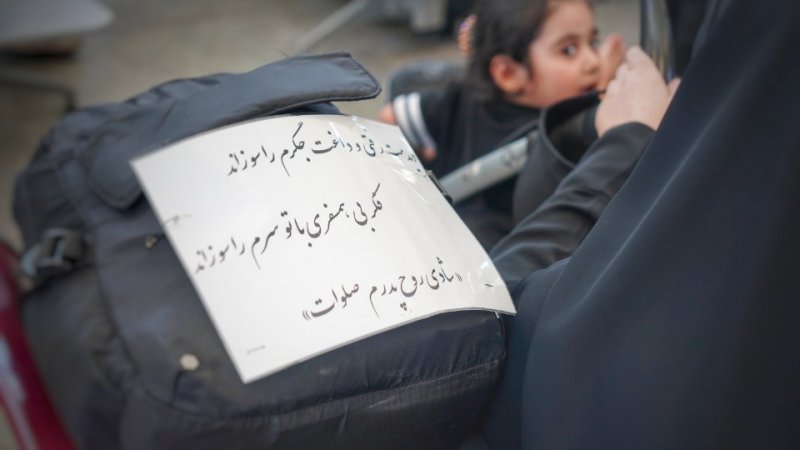 رفتی و داغت جگرم را سوزاند
فکر بی همسفری با تو سرم را سوزاند
«شادی روح پدرم صلوات»